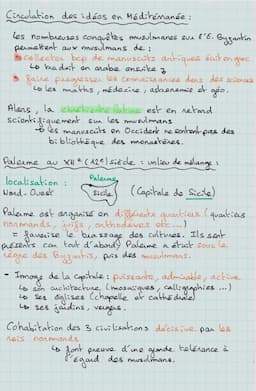 Circulation des idées en Méditerranée :
Les nombreuses conquêtes musulmanes sur l'E. Byzantin
permettent aux musulmans de :
collecter bcp de manuscrits antiques écrit en grec
↳ traduit en arabe ensuite
faire progresser les connaissances dans des sciences
↳ les maths, médecine, astronomie et géo.
Alors, la chrétienté latine est en retard
scientifiquement sur les musulmans
↳ les manuscrits en Occident ne sortent pas des
bibliothèque des monastères.
Palerme au XIIe (12e) siècle : un lieu de mélange :
localisation :
Nord-Ouest
Palerme
Sicile
(Capitale de Sicile)
Palerme est organisé en différents quartiers (quartiers
normands, juifs, orthodoxes etc...)
= favorise le brassage des cultures. Ils sont
présents car tout d'abord Palerme a était sous le
règne des Byzantins, puis des musulmans.
- Image de la capitale : puissante, admirable, active
↳ son architecture (mosaïques, calligraphies ...)
↳ ses églises (chapelle et cathédrale)
↳ ses jardins, vergers.
Cohabitation des 3 civilisations décisive par les
rois normands
↳ font preuve d'une grande tolérance à
l'égard des musulmans.